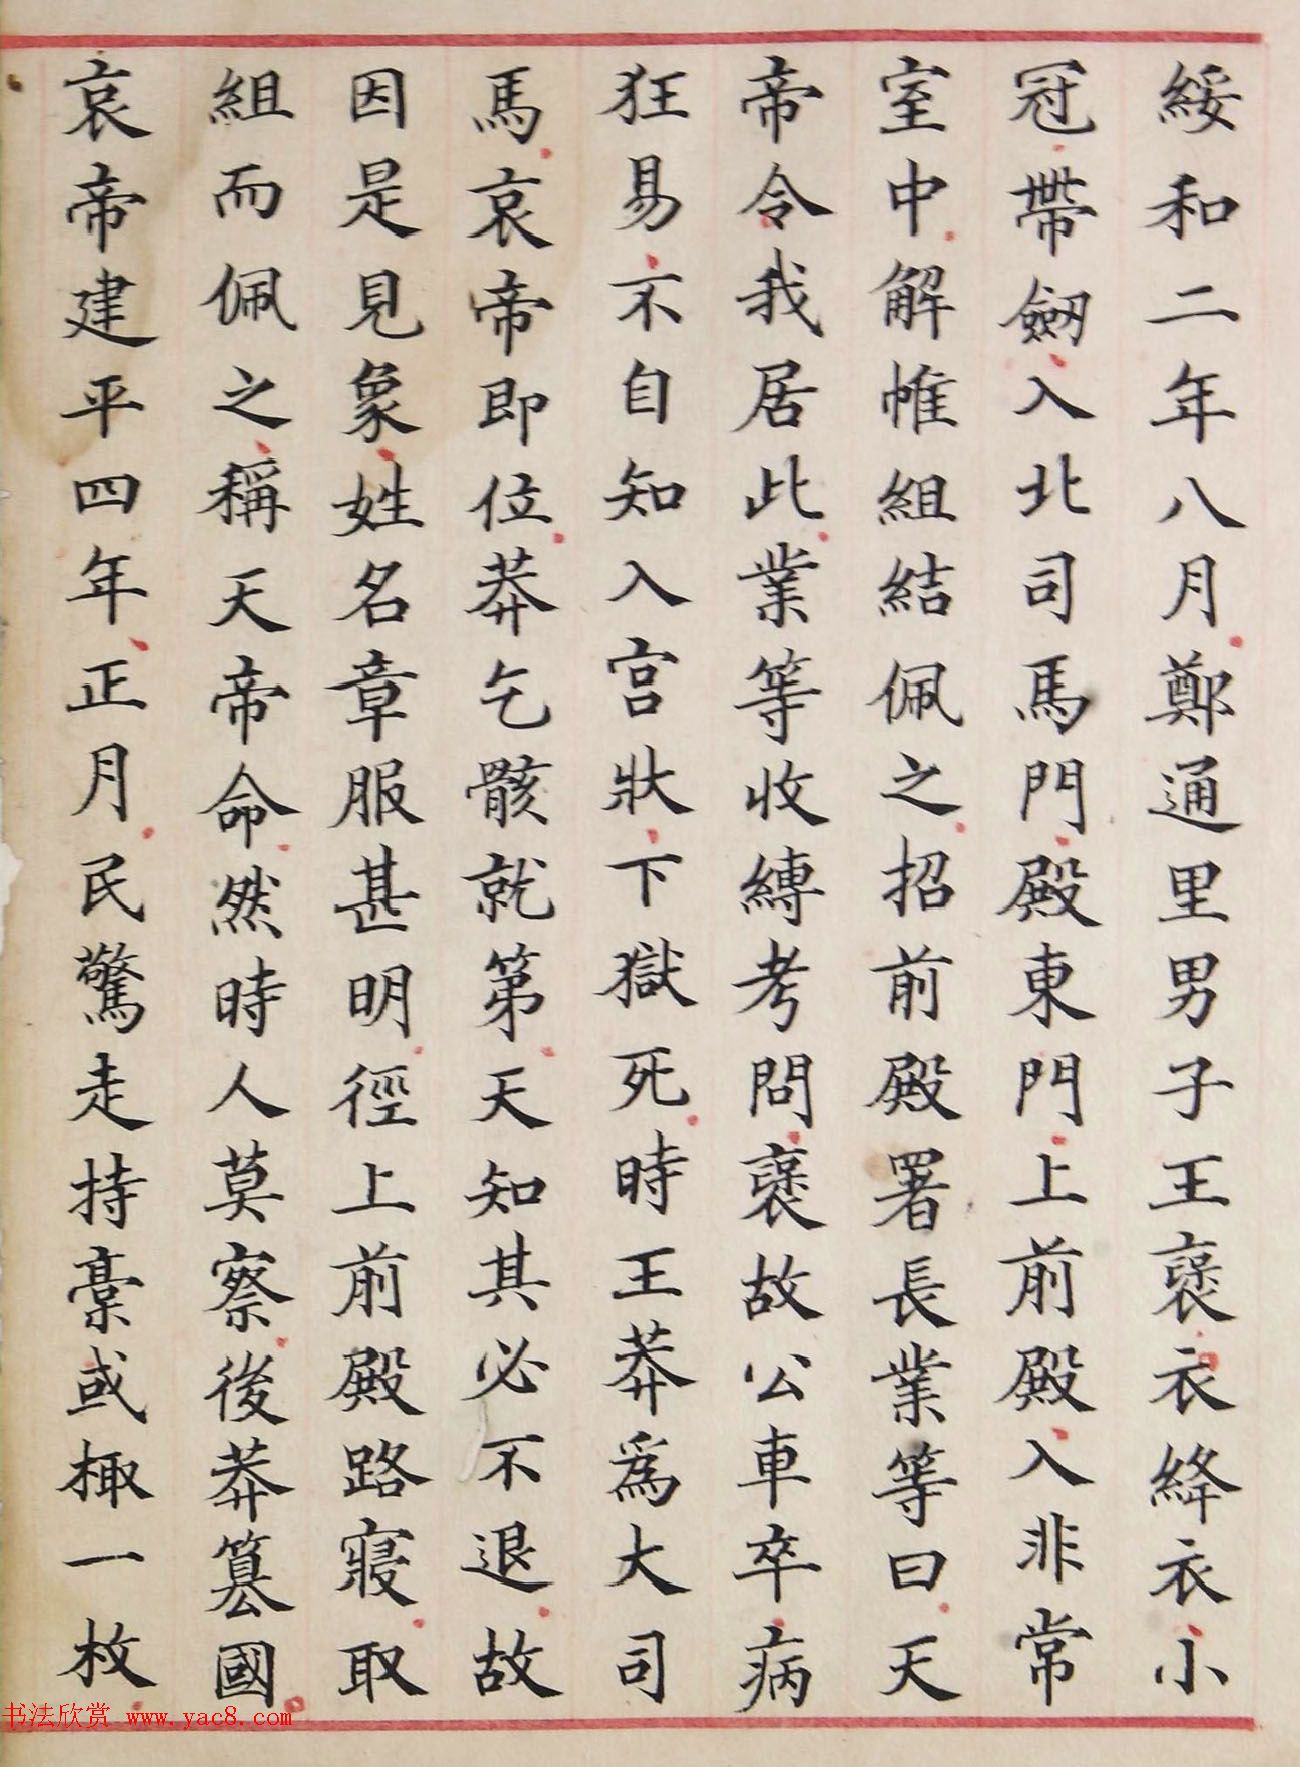 綏和二年八月鄭通里男子王褒衣絳衣小
冠帶劒入北司馬門殿東門上前殿入非常
室中解帷組結佩之招前殿署長業等曰天
帝令我居此業等收縛考問褒故公車卒病
狂易不自知入宮狀下獄死時王莽爲大司
馬哀帝即位莽乞骸就第天知其必不退故
因是見象姓名章服甚明徑上前殿路寢取
組而佩之稱天帝命然時人莫察後莽篡國
哀帝建平四年正月民驚走持稾或棷一枚
书法欣赏 www.yac8.com